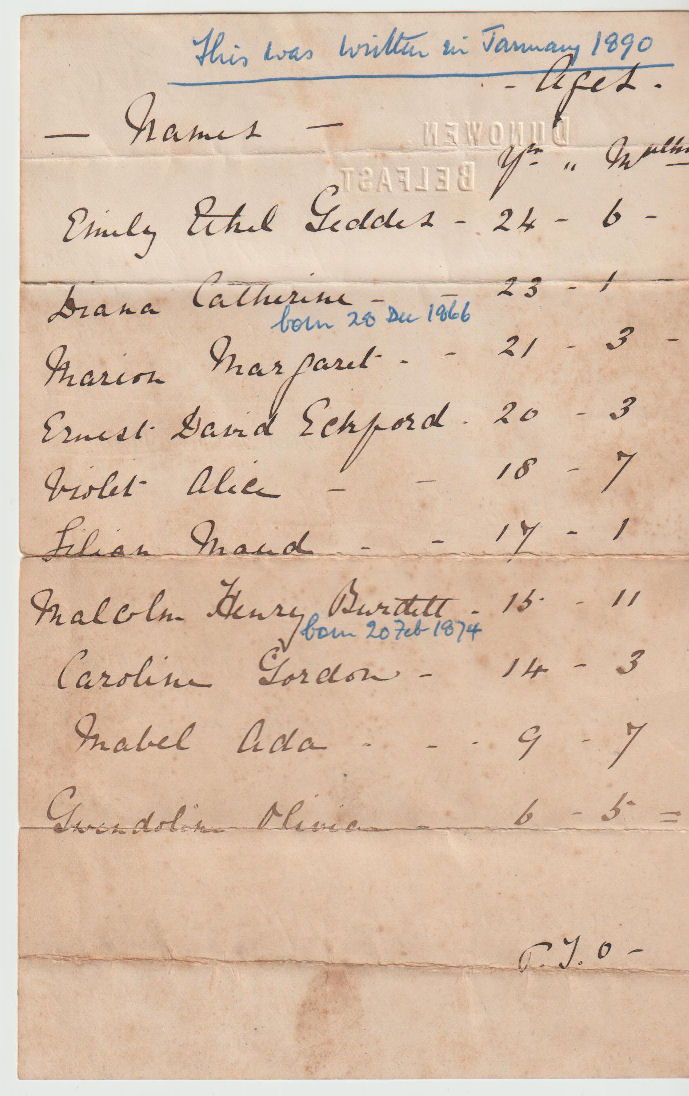 This was written in January 1890
- Ages -
— Names —
DUNOWEN
BELFAST
Yrs " Mnths
Emily Ethel Geddes - 24 - 6 -
Diana Catherine - - 23 - 1 -
born 28 Dec 1866
Marion Margaret - - 21 - 3 -
Ernest David Eckford - 20 - 3
Violet Alice - - 18 - 7
Lilian Maud - - 17 - 1
Malcolm Henry Burdett - 15 - 11
born 20 Feb 1874
Caroline Gordon - 14 - 3
Mabel Ada - - - 9 - 7
Gwendolin Olivia - 6 - 5 =
P.T.O -